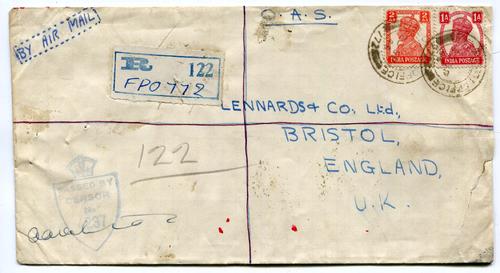 O. A. S.
BY AIR MAIL
2A 2A
INDIA POSTAGE
1A 1A
INDIA POSTAGE
R 122
FPO 772
LENNARDS & Co, Ltd,
BRISTOL,
ENGLAND,
U.K.
122
PASSED BY
CENSOR
No